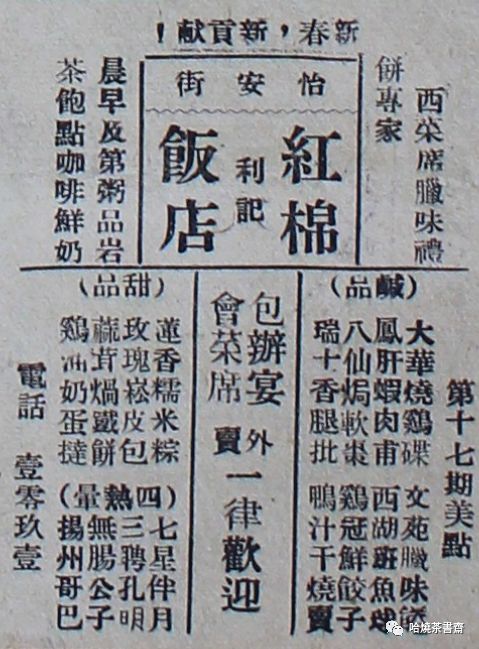 新春，新貢献！
西菜席臘味禮
餅專家
怡安街
紅棉
利記
飯店
晨早及第粥品岩
茶飽點咖啡鮮奶
第十七期美點
(鹹品)
大華燒鷄碟
鳳肝蝦肉甫
八仙焗軟棗
瑞士香腿批
文苑臘味
西湖斑魚球
鷄冠鮮餃子
鴨汁干燒賣
包辦宴
會菜席
外賣
一律歡迎
(甜品)
蓮香糯米粽
玫瑰崧皮包
蔴茸煱鐵餅
鷄油奶蛋撻
(四熱暈)
七星伴月
三聘孔明
無腸公子
揚州哥巴
電話 壹零玖壹
哈燒茶書齋